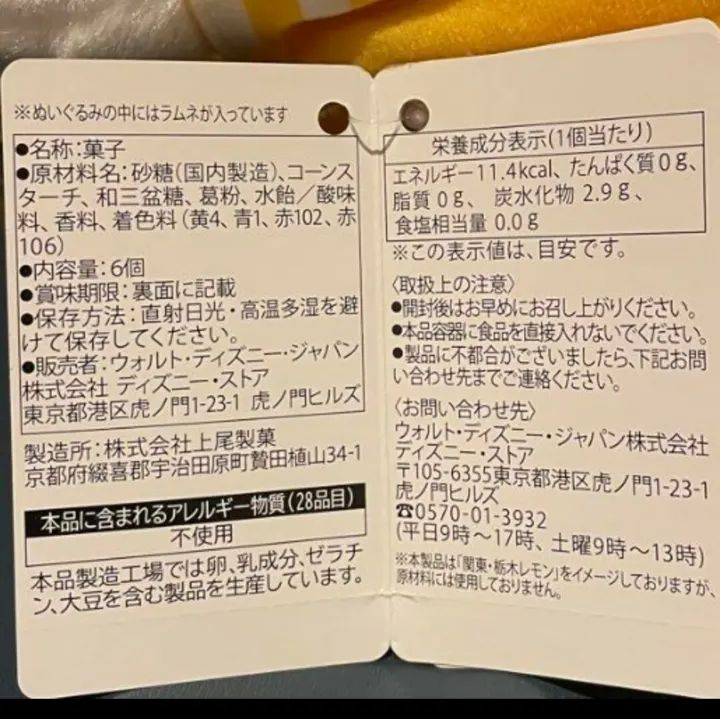 ※ぬいぐるみの中にはラムネが入っています
●名称:菓子
●原材料名:砂糖(国内製造)、コーンス
ターチ、和三盆糖、葛粉、水飴／酸味
料、香料、着色料(黄4、青1、赤102、赤
106)
●内容量:6個
●賞味期限:裏面に記載
●保存方法:直射日光・高温多湿を避
けて保存してください。
●販売者:ウォルト・ディズニー・ジャパン
株式会社 ディズニー・ストア
東京都港区虎ノ門1-23-1 虎ノ門ヒルズ
製造所:株式会社上尾製菓
京都府綴喜郡宇治田原町贄田植山34-1
本品に含まれるアレルギー物質(28品目)
不使用
本品製造工場では卵、乳成分、ゼラチ
ン、大豆を含む製品を生産しています。
栄養成分表示(1個当たり)
エネルギー11.4kcal、たんぱく質0g、
脂質0g、 炭水化物 2.9g、
食塩相当量 0.0g
※この表示値は、目安です。
〈取扱上の注意〉
●開封後はお早めにお召し上がりください。
●本品容器に食品を直接入れないでください。
●製品に不都合がございましたら、下記お問
い合わせ先までご連絡ください。
〈お問い合わせ先〉
ウォルト・ディズニー・ジャパン株式会社
ディズニー・ストア
〒105-6355東京都港区虎ノ門1-23-1
虎ノ門ヒルズ
☎0570-01-3932
(平日9時〜17時、土曜9時〜13時)
※本製品は「関東・栃木レモン」をイメージしておりますが、
原材料には使用しておりません。